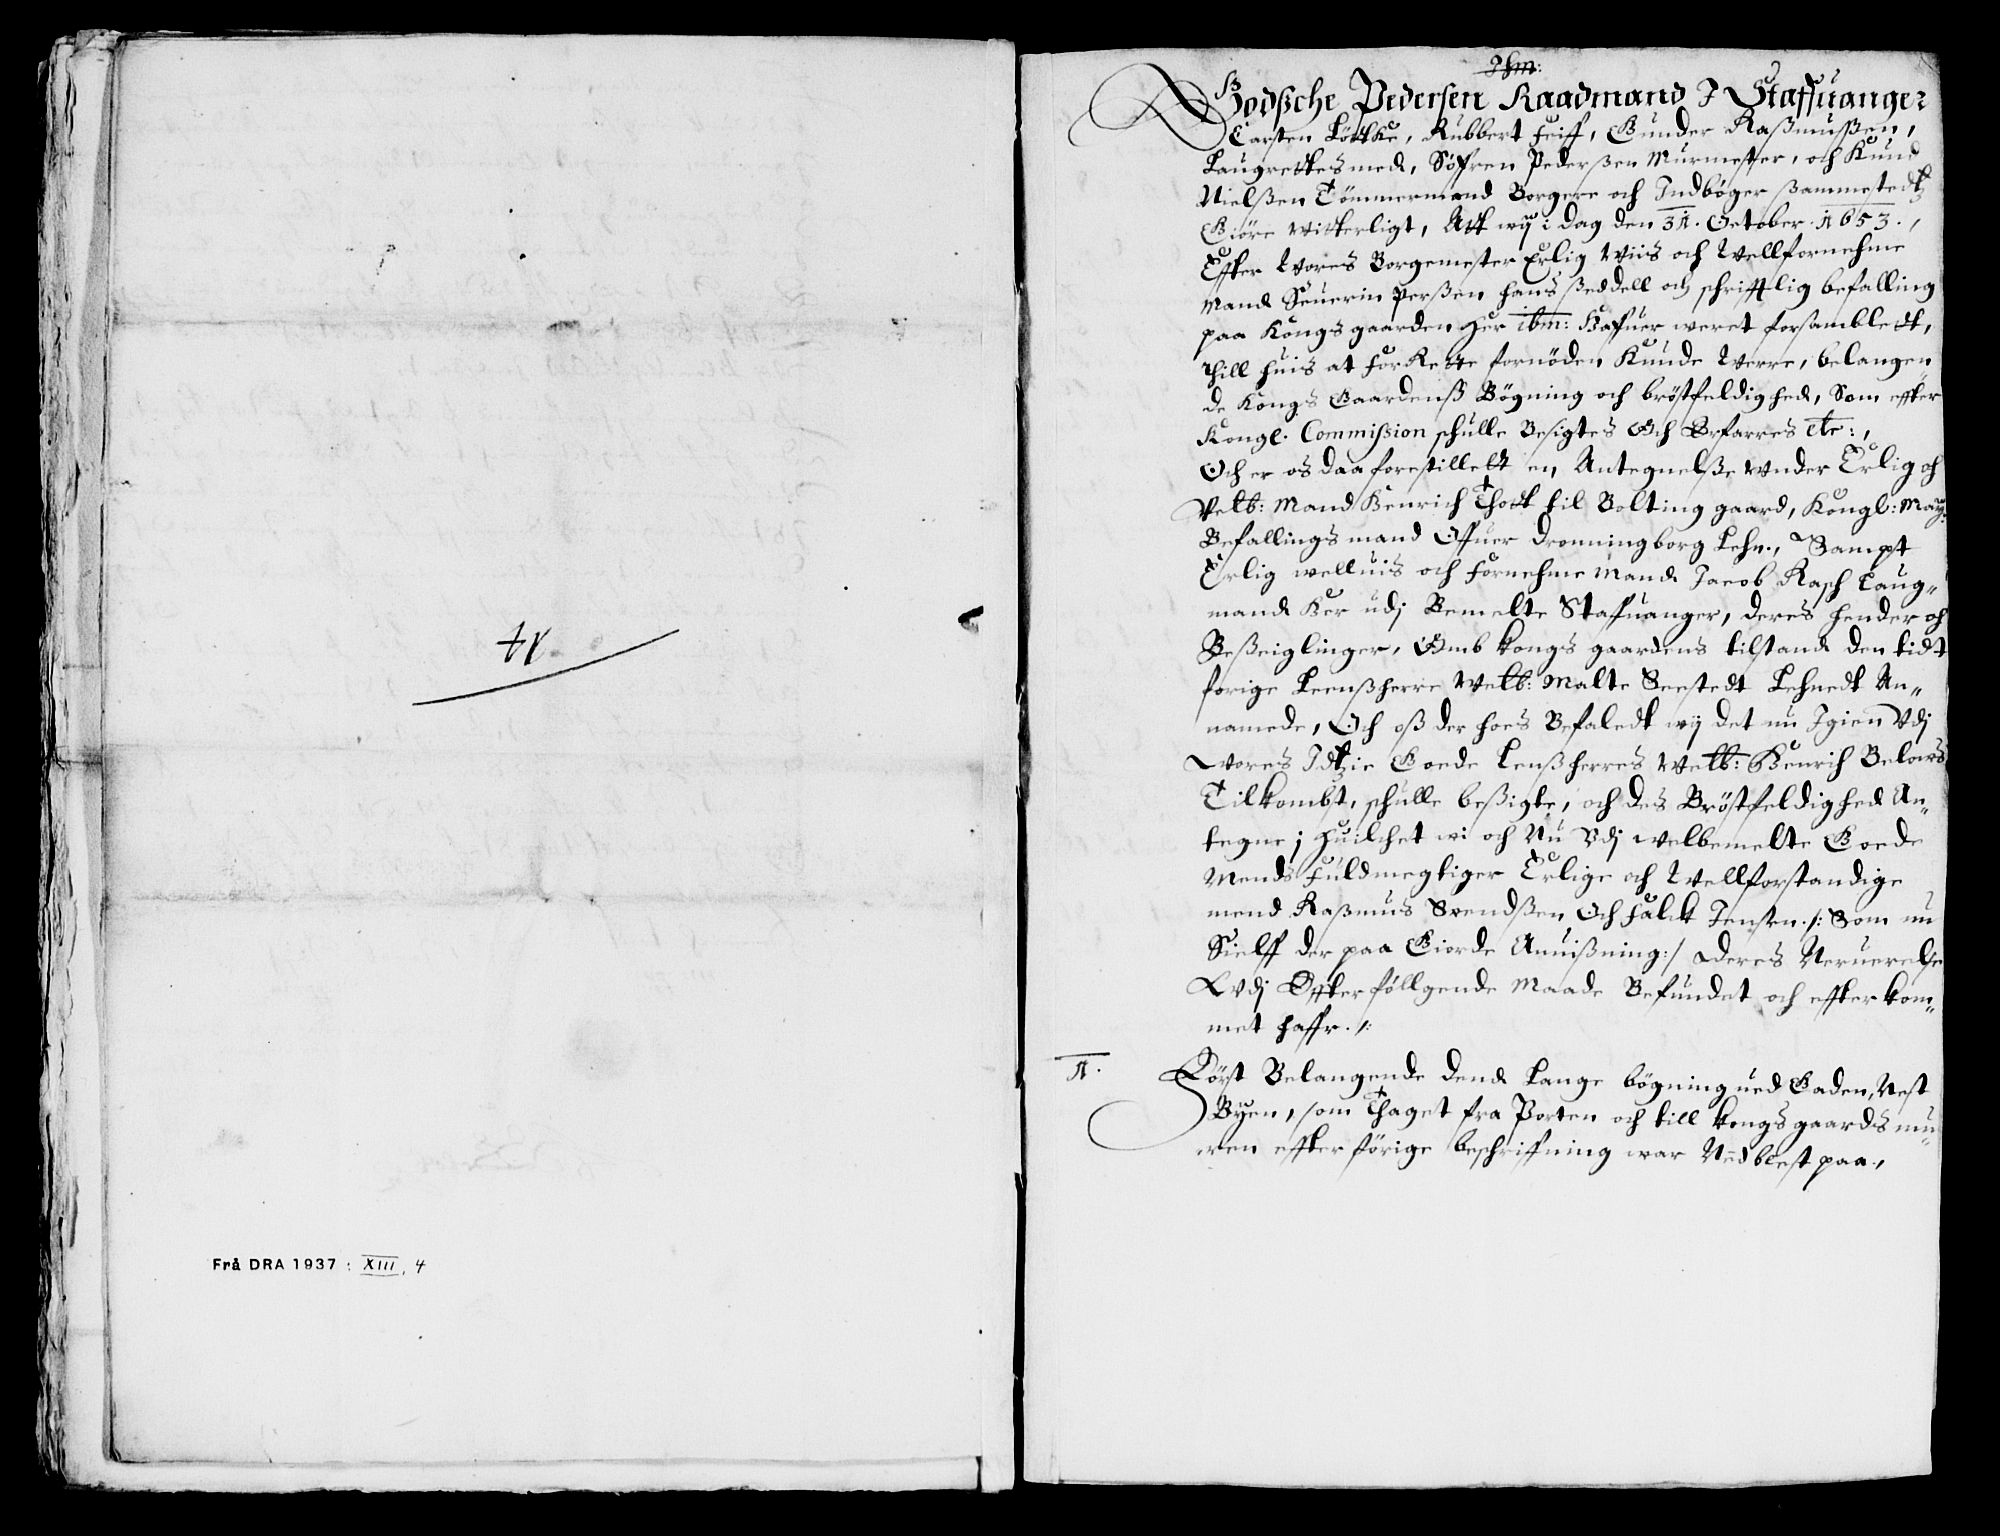 41
Frå DRA 1937 : XIII, 4
Ihm:
Bodsche Pedersen Raadmand I Staffuanger
Carsten Löttke, Rubbert Feiff, Gunder Rasmussen,
Laugrettesmend, Söffren Pederßen Murmester, och Knud
Nielßen Tömmermand Borgere och Indböger sammestedtz
Giöre witterligt, Att wÿ i dag den 31. October. 1653.,
Effter Wores Borgemester Erlig Wiis och Wellfornehme
Mand Seuerin Perßen hans ßeddell och schrifftlig befalling
paa Kongsgaarden her ibm: Haffuer weret forsambledt,
Thill huis at forrette fornöden Kunde Werre, belangen
de Kongs Gaardenß Bögning och bröstfeldighed, Som effter
Kongl. Commission schulle Besigtes Och Erfarres etc:,
Och er os daa forestillelt en Antegnelße Vnder Erlig och
Velb: Mand Henrich Thott til Bolting gaard, Kongl: Maÿ:
Befallings mand Offuer Dronningborg Lehn., Sampt
Erlig welluis och Fornehme Mand Jacob Rasch Laug„
mand Her udj Bemelte Staffuanger, deres hender och
Beßeiglinger, Omb kongs gaardens tilstand den tidt
forige Leenßherre Welb: Malte Seestedt Lehnedt An„
namede, Och oß der hoes Befaledt wij det nu Igien Vdj
Wores Itzie Goede Lenßherres Welb: Henrich Belows
Tilkombst, schulle beßigte, och des Bröstfeldighed An„
tegne; Huilchet wi och Nu Vdj welbemelte Goede
Mends Fuldmegtiger Erlige och Wellforstandige
mend Raßmus Svendßen Och Falck Jensen./: Som nu
Sielff der paa Giorde Anuißning:/ Deres Neruerelse
Vdj Effterföllgende Maade Befundet och effterkom„
met haffr./:
1.
Först Belangende dend Lange bögning ued Gaden, Nest
Byen, som Thaget fra Porten och till kongsgaards mu„
ren effter förige beschriffning war Nedblest paa,